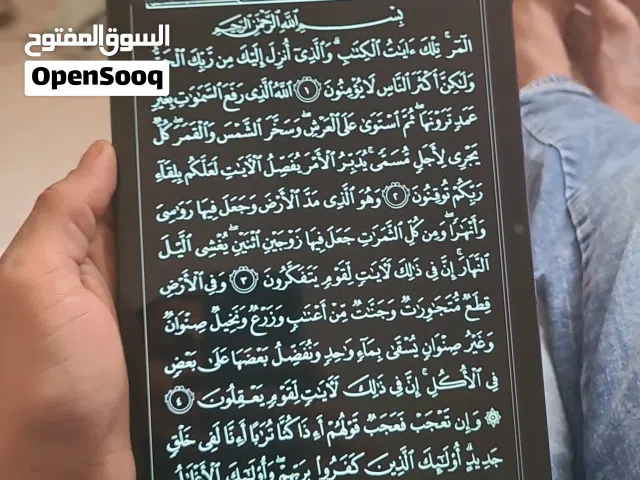 السوق المفتوح
OpenSooq
بِسْمِ اللَّهِ الرَّحْمَٰنِ الرَّحِيمِ
الٓمٓر ۚ تِلْكَ ءَايَٰتُ ٱلْكِتَٰبِ ۗ وَٱلَّذِىٓ أُنزِلَ إِلَيْكَ مِن رَّبِّكَ
وَلَٰكِنَّ أَكْثَرَ ٱلنَّاسِ لَا يُؤْمِنُونَ ١ ٱللَّهُ ٱلَّذِى رَفَعَ ٱلسَّمَٰوَٰتِ بِغَيْرِ
عَمَدٍ تَرَوْنَهَا ۖ ثُمَّ ٱسْتَوَىٰ عَلَى ٱلْعَرْشِ ۖ وَسَخَّرَ ٱلشَّمْسَ وَٱلْقَمَرَ ۖ كُلٌّ
يَجْرِى لِأَجَلٍ مُّسَمًّى ۚ يُدَبِّرُ ٱلْأَمْرَ يُفَصِّلُ ٱلْءَايَٰتِ لَعَلَّكُم بِلِقَآءِ
رَبِّكُمْ تُوقِنُونَ ٢ وَهُوَ ٱلَّذِى مَدَّ ٱلْأَرْضَ وَجَعَلَ فِيهَا رَوَٰسِىَ
وَأَنْهَٰرًا ۖ وَمِن كُلِّ ٱلثَّمَرَٰتِ جَعَلَ فِيهَا زَوْجَيْنِ ٱثْنَيْنِ ۖ يُغْشِى ٱلَّيْلَ
ٱلنَّهَارَ ۚ إِنَّ فِى ذَٰلِكَ لَءَايَٰتٍ لِّقَوْمٍ يَتَفَكَّرُونَ ٣ وَفِى ٱلْأَرْضِ
قِطَعٌ مُّتَجَٰوِرَٰتٌ وَجَنَّٰتٌ مِّنْ أَعْنَٰبٍ وَزَرْعٌ وَنَخِيلٌ صِنْوَانٌ
وَغَيْرُ صِنْوَانٍ يُسْقَىٰ بِمَآءٍ وَٰحِدٍ وَنُفَضِّلُ بَعْضَهَا عَلَىٰ بَعْضٍ
فِى ٱلْأُكُلِ ۚ إِنَّ فِى ذَٰلِكَ لَءَايَٰتٍ لِّقَوْمٍ يَعْقِلُونَ ٤
۞ وَإِن تَعْجَبْ فَعَجَبٌ قَوْلُهُمْ أَءِذَا كُنَّا تُرَٰبًا أَءِنَّا لَفِى خَلْقٍ
جَدِيدٍ ۗ أُو۟لَٰٓئِكَ ٱلَّذِينَ كَفَرُوا۟ بِرَبِّهِمْ ۖ وَأُو۟لَٰٓئِكَ ٱلْأَغْلَٰلُ